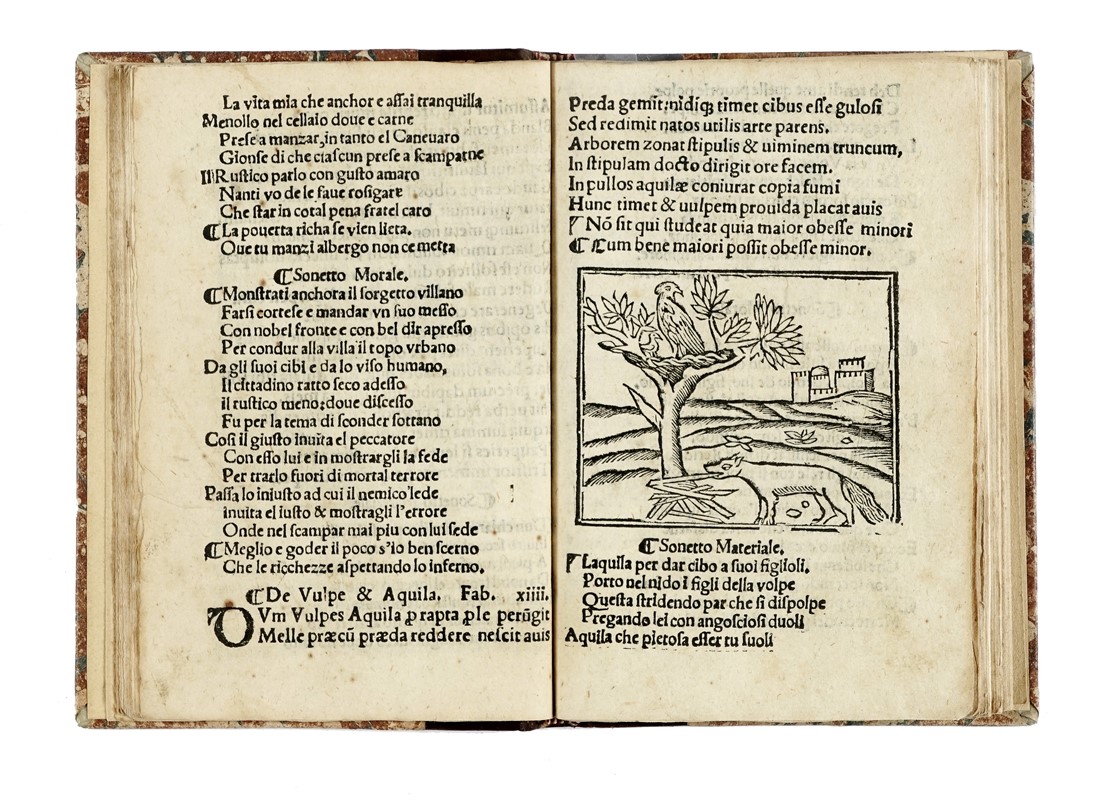 La vita mia che anchor e assai tranquilla
Menollo nel cellaio doue e carne
Prese a manzar, in tanto el Caneuaro
Gionse di che ciascun prese a scampatne
Il Rustico parlo con gusto amaro
Nanti vo de le faue rosigare
Che star in cotal pena fratel caro
¶ La pouerta richa se vien lieta.
Oue tu manzi albergo non ce metta
¶ Sonetto Morale.
¶ Monstrati anchora il sorgetto villano
Farsi cortese e mandar vn suo messo
Con nobel fronte e con bel dir apresso
Per condur alla villa il topo vrbano
Da gli suoi cibi e da lo viso humano,
Il cittadino ratto seco adesso
il rustico meno: doue discesso
Fu per la tema di sconder sottano
Cosi il giusto inuita el peccatore
Con esso lui e in mostrargli la fede
Per trarlo fuori di mortal terrore
Passa lo iniusto ad cui il nemico lede
inuita el iusto & mostragli l'errore
Onde nel scampar mai piu con lui sede
¶ Meglio e goder il poco s'io ben scerno
Che le ricchezze aspettando lo inferno.
¶ De Vulpe & Aquila. Fab. xiiii.
DVm Vulpes Aquila ꝓ rapta ꝓle perũgit
Melle præcũ præda reddere nescit auis
Preda gemit: nidiqꝫ timet cibus esse gulosi
Sed redimit natos utilis arte parens.
Arborem zonat stipulis & uiminem truncum,
In stipulam docto dirigit ore facem.
In pullos aquilæ coniurat copia fumi
Hunc timet & uulpem prouida placat auis
Nõ sit qui studeat quia maior obesse minori
¶ Cum bene maiori possit obesse minor.
¶ Sonetto Materiale.
Laquila per dar cibo a suoi figlioli.
Porto nel nido i figli della volpe
Questa stridendo par che si dispolpe
Pregando lei con angosciosi duoli
Aquila che pietosa esser tu suoli